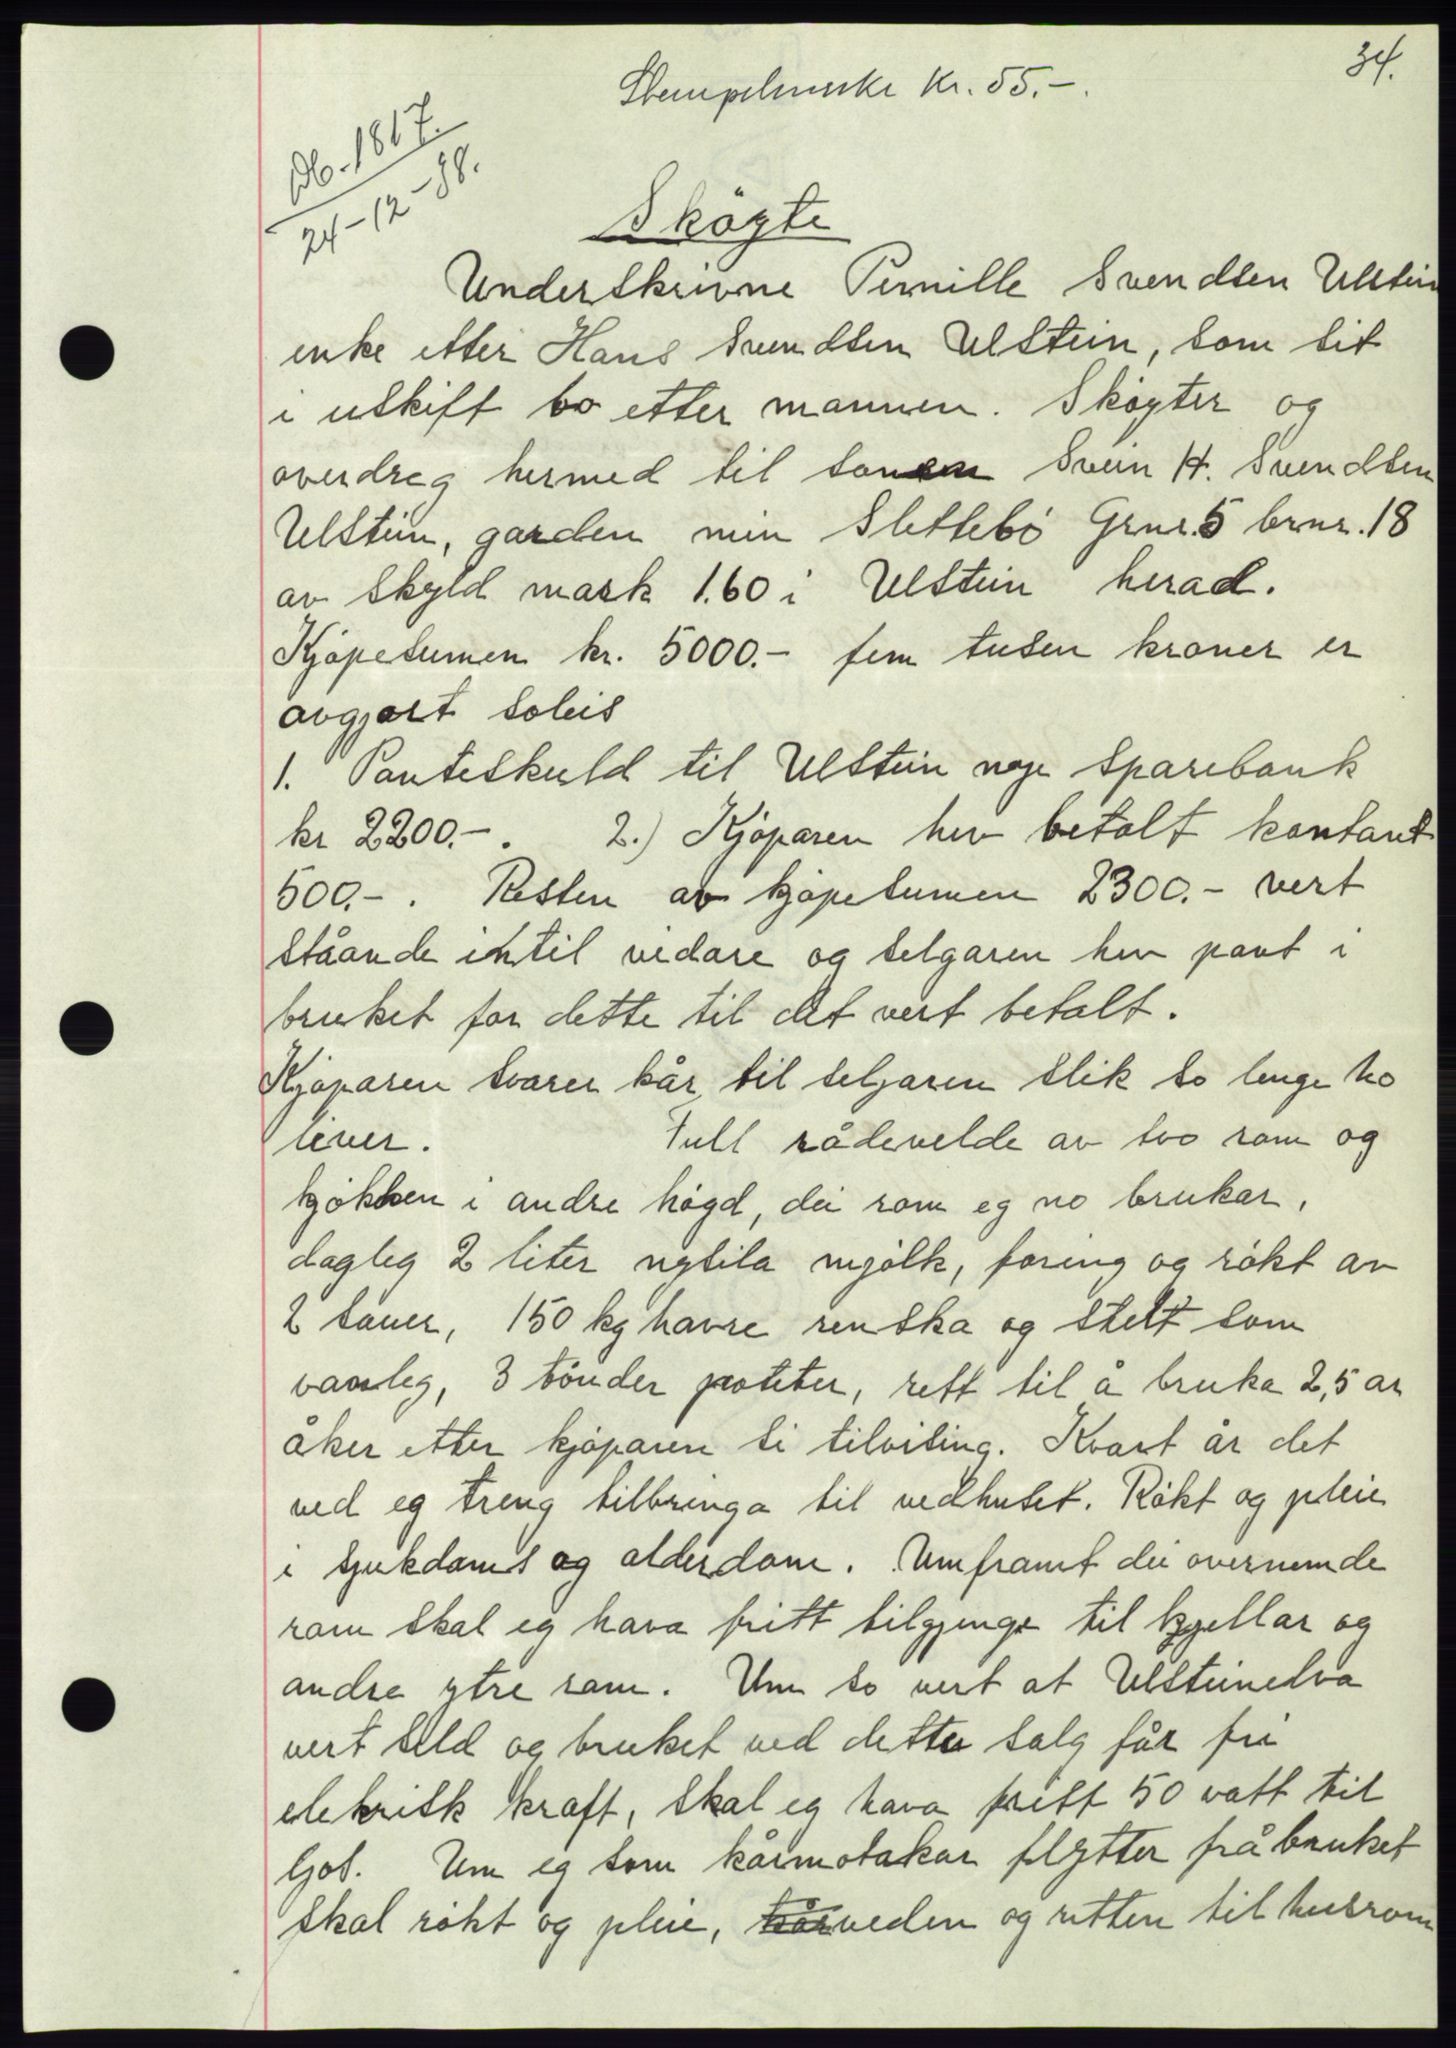 34.
Stempelmerke kr. 55.-.
Db. 1817.
24-12-38.
Sköyte
Underskrivne Pernille Svendsen Ulstein
enke etter Hans Svendsen Ulstein, som sit
i uskift bo etter mannen. Sköyter og
overdreg hermed til sonen Svein H. Svendsen
Ulstein, garden min Slettebö Grnr. 5 brnr. 18
av skyld mark 1.60 i Ulstein herad.
Kjöpesumen kr. 5000.- fem tusen kroner er
avgjort soleis
1. Panteskuld til Ulstein nye Sparebank
kr 2200.-. 2.) Kjöparen hev betalt kontant
500.-. Resten av kjöpesumen 2300.- vert
ståande intil vidare og selgaren hev pant i
bruket for dette til det vert betalt.
Kjöparen svarer kår til seljaren slik so lenge ho
lever. Full rådevelde av tvo rom og
kjökken i andre högd, dei rom eg no brukar,
dagleg 2 liter nysila mjölk, foring og rökt av
2 sauer, 150 kg havre renska og stelt som
vanleg, 3 tönder poteter, rett til å bruka 2,5 ar
åker etter kjöparen si tilvising. Kvart år det
ved eg treng tilbringa til vedhuset. Rökt og pleie
i sjukdoms og alderdom. Umframt dei overnemde
rom skal eg hava fritt tilgjenge til kjellar og
andre ytre rom. Um so vert at Ulsteinelva
vert seld og bruket ved dette salg får fri
elekrisk kraft, skal eg hava fritt 50 watt til
ljos. Um eg som kårmotakar flytter frå bruket
skal rökt og pleie, kårveden og retten til husrom